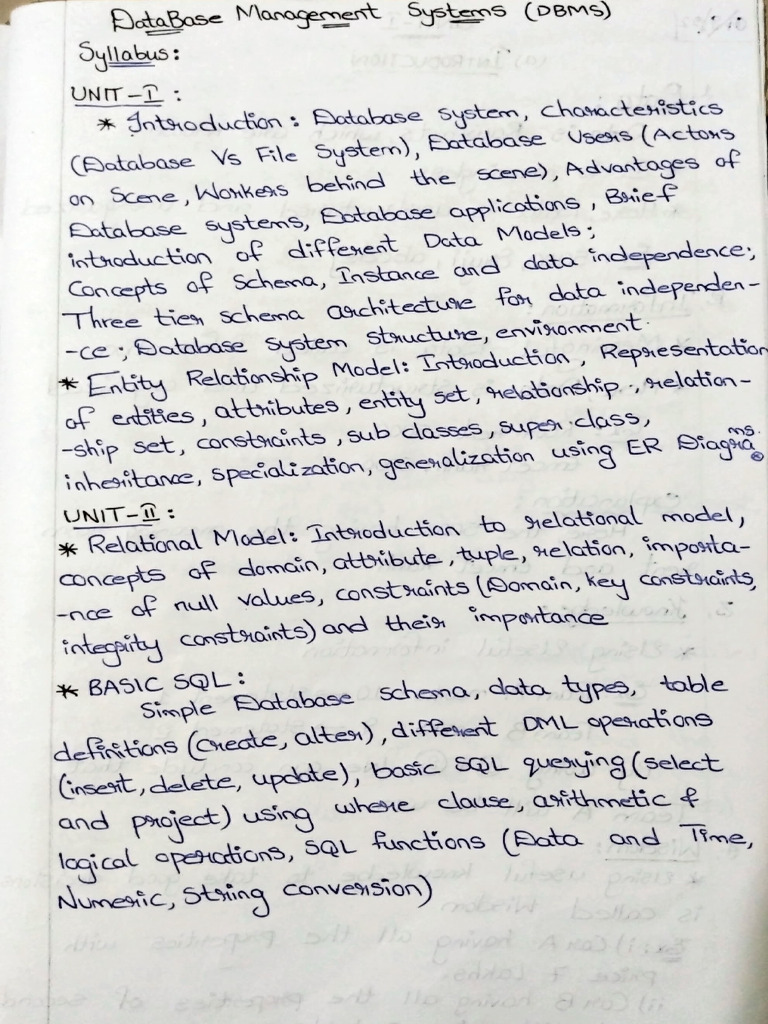 DataBase Management Systems (DBMS)
Syllabus:
UNIT-I:
* Introduction: Database system, Characteristics
(Database Vs File System), Database Users (Actors
on Scene, Workers behind the scene), Advantages of
Database systems, Database applications, Brief
introduction of different Data Models;
Concepts of Schema, Instance and data independence;
Three tier schema architecture for data independen-
-ce; Database system structure, environment.
* Entity Relationship Model: Introduction, Representation
of entities, attributes, entity set, relationship, relation-
-ship set, constraints, sub classes, super class,
inheritance, specialization, generalization using ER Diagrams.
UNIT-II:
* Relational Model: Introduction to relational model,
concepts of domain, attribute, tuple, relation, importa-
-nce of null values, constraints (Domain, key constraints,
integrity constraints) and their importance
* BASIC SQL:
Simple Database schema, data types, table
definitions (create, alter), different DML operations
(insert, delete, update), basic SQL querying (select
and project) using where clause, arithmetic &
logical operations, SQL functions (Data and Time,
Numeric, String conversion)